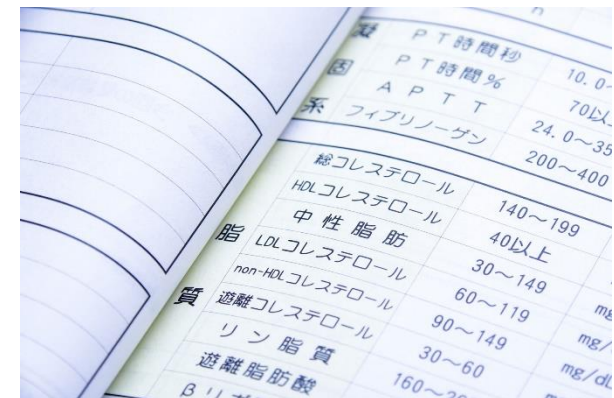 凝固系
PT時間秒 10.0
PT時間% 70以
APTT 24.0～35
フィブリノーゲン 200～400
脂質
総コレステロール 140～199
HDLコレステロール 40以上
中性脂肪 30～149
LDLコレステロール 60～119 mg
non-HDLコレステロール 90～149 mg/
遊離コレステロール 30～60 mg/dl
リン脂質 160～2
遊離脂肪酸
βリポ